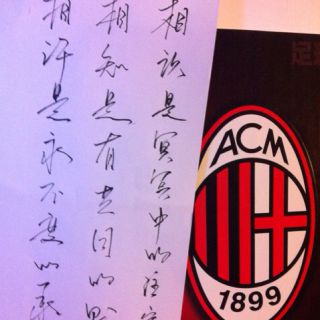 相识是冥冥中的注定
相知是有共同的默
相许是永不变的承
ACM
1899
足